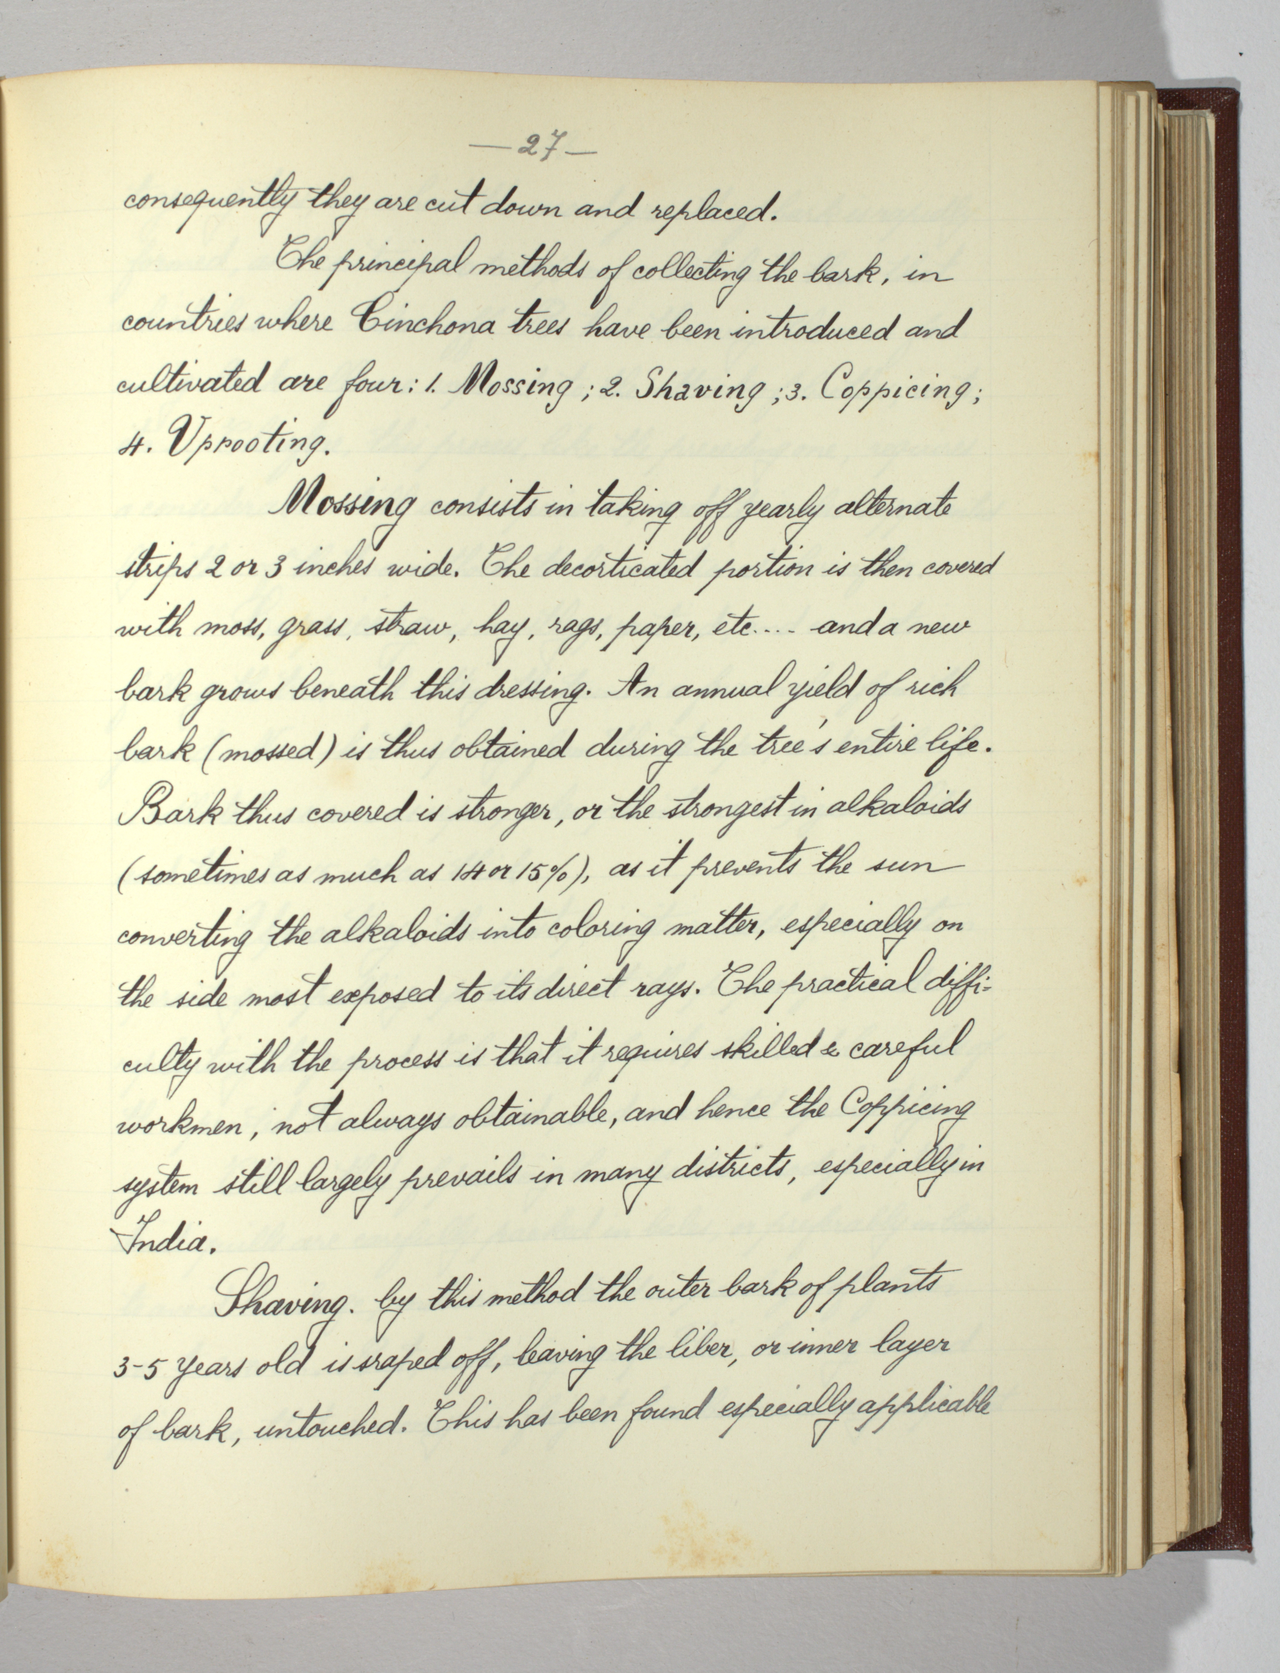 —27—
consequently they are cut down and replaced.
The principal methods of collecting the bark, in
countries where Cinchona trees have been introduced and
cultivated are four: 1. Mossing; 2. Shaving; 3. Coppicing;
4. Uprooting.
Mossing consists in taking off yearly alternate
strips 2 or 3 inches wide. The decorticated portion is then covered
with moss, grass, straw, hay, rags, paper, etc.... and a new
bark grows beneath this dressing. An annual yield of rich
bark (mossed) is thus obtained during the tree's entire life.
Bark thus covered is stronger, or the strongest in alkaloids
(sometimes as much as 14 or 15%), as it prevents the sun
converting the alkaloids into coloring matter, especially on
the side most exposed to its direct rays. The practical diffi=
culty with the process is that it requires skilled & careful
workmen, not always obtainable, and hence the Coppicing
system still largely prevails in many districts, especially in
India.
Shaving. by this method the outer bark of plants
3-5 years old is sraped off, leaving the liber, or inner layer
of bark, untouched. This has been found especially applicable